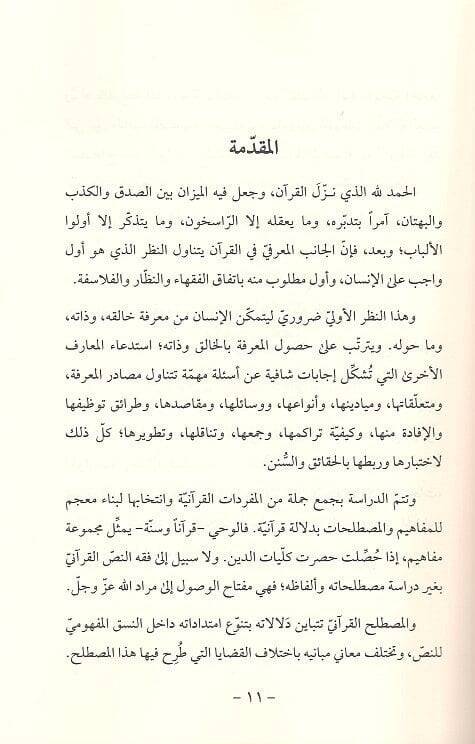 المقدّمة
الحمد لله الذي نـزّلَ القرآن، وجعل فيه الميزان بين الصدق والكذب
والبهتان، آمراً بتدبّره، وما يعقله إلا الرّاسخون، وما يتذكّر إلا أولوا
الألباب؛ وبعد، فإنّ الجانب المعرفيّ في القرآن يتناول النظر الذي هو أول
واجب علىٰ الإنسان، وأول مطلوب منه باتفاق الفقهاء والنظّار والفلاسفة.
وهذا النظر الأوليّ ضروريّ ليتمكّن الإنسان من معرفة خالقه، وذاته،
وما حوله. ويترتّب علىٰ حصول المعرفة بالخالق وذاته؛ استدعاء المعارف
الأخرىٰ التي تُشكِّل إجابات شافية عن أسئلة مهمّة تتناول مصادر المعرفة،
ومتعلّقاتها، وميادينها، وأنواعها، ووسائلها، ومقاصدها، وطرائق توظيفها
والإفادة منها، وكيفيّة تراكمها، وجمعها، وتناقلها، وتطويرها؛ كلّ ذلك
لاختبارها وربطها بالحقائق والسُّنن.
وتتمّ الدراسة بجمع جملة من المفردات القرآنيّة وانتخابها لبناء معجم
للمفاهيم والمصطلحات بدلالة قرآنيّة. فالوحي -قرآناً وسنّة- يمثِّل مجموعة
مفاهيم، إذا حُصِّلت حصرت كلّيات الدين. ولا سبيل إلىٰ فقه النصّ القرآنيّ
بغير دراسة مصطلحاته وألفاظه؛ فهي مفتاح الوصول إلىٰ مراد الله عزّ وجلّ.
والمصطلح القرآنيّ تتباين دَلالاته بتنوّع امتداداته داخل النسق المفهوميّ
للنصّ، وتختلف معاني مبانيه باختلاف القضايا التي طُرِح فيها هذا المصطلح.
- ١١ -